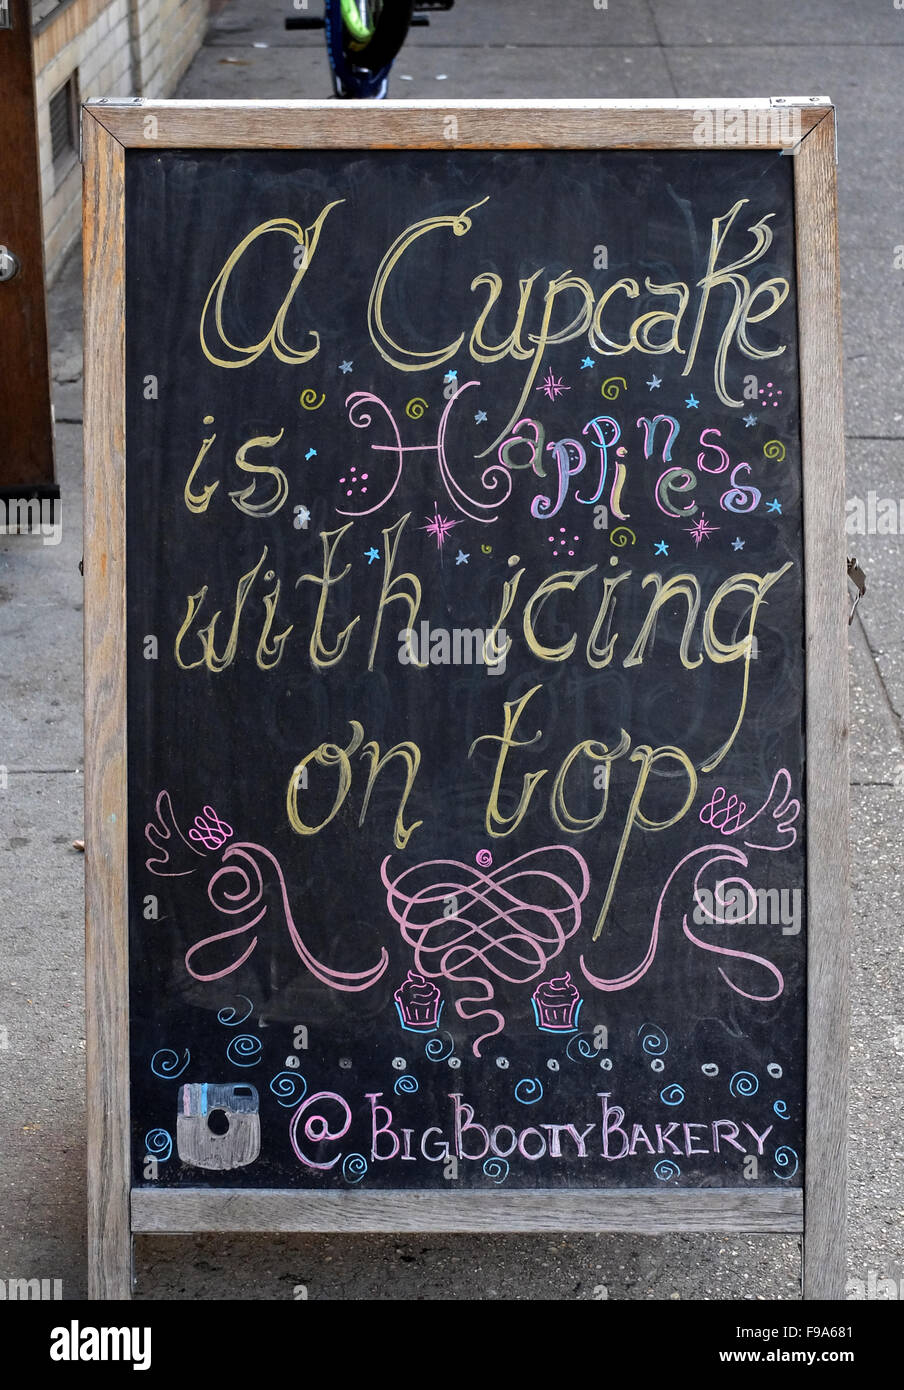 A Cupcake
is Happiness
with icing
on top
@BigBootyBakery
alamy
Image ID: F9A681
www.alamy.com